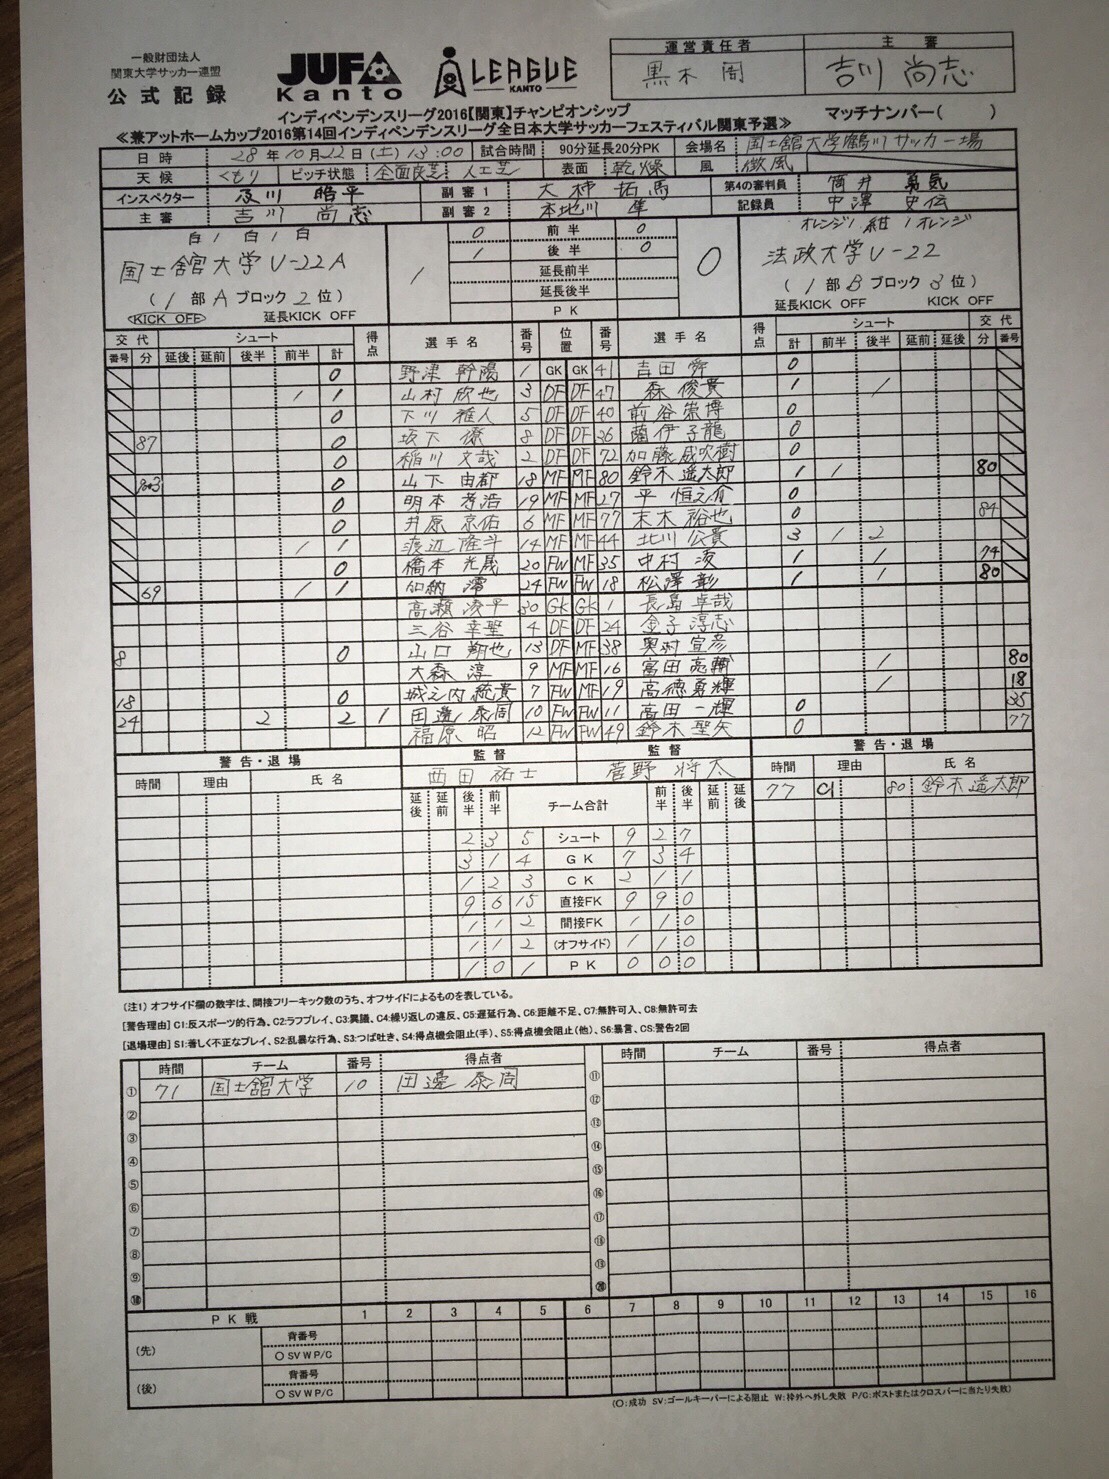 一般財団法人
関東大学サッカー連盟
公式記録
JUFA Kanto
I LEAGUE KANTO
運営責任者 主審
黒木 吉川 尚志
インディペンデンスリーグ2016【関東】チャンピオンシップ マッチナンバー( )
≪兼アットホームカップ2016第14回インディペンデンスリーグ全日本大学サッカーフェスティバル関東予選≫
日時 28年10月22日(土)13:00 試合時間 90分延長20分PK 会場名 国士舘大学鶴川サッカー場
天候 くもり ピッチ状態 全面良芝 人工芝 表面 乾燥 風 微風
インスペクター 及川 昭平 副審1 大棟 拓馬 第4の審判員 筒井 勇気
主審 吉川 尚志 副審2 本地川 隼 記録員 中澤 史伝
白/白/白 0 前半 0 オレンジ/紺/オレンジ
国士舘大学U-22A 1 1 後半 0 0 法政大学U-22
延長前半
(1部Aブロック2位) 延長後半 (1部Bブロック3位)
KICK OFF 延長KICK OFF PK 延長KICK OFF KICK OFF
交代 シュート 得点 選手名 番号 位置 番号 選手名 得点 シュート 交代
番号 分 延後 延前 後半 前半 計 計 前半 後半 延前 延後 分 番号
0 野津 幹陽 1 GK GK 41 吉田 舜 0
1 1 山村 欣也 3 DF DF 47 森 俊貴 1 1
0 下川 雅人 5 DF DF 40 前谷 崇博 0
87 0 坂下 僚 8 DF DF 36 蘭 伊子龍 0
0 稲川 文哉 2 DF DF 72 加藤 威吹樹 0
90+3 0 山下 由都 18 MF MF 80 鈴木 遥太郎 1 1 80
0 明本 孝浩 19 MF MF 27 平 恒之介 0
0 井原 京佑 6 MF MF 77 末木 裕也 0 84
1 1 渡辺 隆斗 14 MF MF 44 北川 公貴 3 1 2
0 橋本 光晟 20 FW MF 35 中村 凌 1 1 74
69 1 1 加納 澪 24 FW FW 18 松澤 彰 1 1 80
高瀬 凌平 30 GK GK 1 長島 卓哉
三谷 幸聖 4 DF DF 24 金子 淳志
8 0 山口 翔也 13 DF MF 38 奥村 宜彦
大森 淳 9 MF MF 16 富田 亮輔 1 80
18 0 城之内 統貴 7 FW MF 19 高徳 勇輝 1 18
24 2 2 1 田邊 泰周 10 FW FW 11 高田 一輝 0 35
福原 昭 12 FW FW 49 鈴木 聖矢 0 77
警告・退場 監督 監督 警告・退場
時間 理由 氏名 西田 祐士 菅野 将太 時間 理由 氏名
延後 延前 後半 前半 チーム合計 前半 後半 延前 延後 77 C1 80 鈴木 遥太郎
2 3 5 シュート 9 2 7
3 1 4 GK 7 3 4
1 2 3 CK 2 1 1
9 6 15 直接FK 9 9 0
1 1 2 間接FK 1 1 0
1 1 2 (オフサイド) 1 1 0
1 0 1 PK 0 0 0
(注1) オフサイド欄の数字は、間接フリーキック数のうち、オフサイドによるものを表している。
[警告理由] C1:反スポーツ的行為、C2:ラフプレイ、C3:異議、C4:繰り返しの違反、C5:遅延行為、C6:距離不足、C7:無許可入、C8:無許可去
[退場理由] S1:著しく不正なプレイ、S2:乱暴な行為、S3:つば吐き、S4:得点機会阻止(手)、S5:得点機会阻止(他)、S6:暴言、CS:警告2回
時間 チーム 番号 得点者 時間 チーム 番号 得点者
① 71 国士舘大学 10 田邊 泰周 ⑪
② ⑫
③ ⑬
④ ⑭
⑤ ⑮
⑥ ⑯
⑦ ⑰
⑧ ⑱
⑨ ⑲
⑩ ⑳
PK戦 1 2 3 4 5 6 7 8 9 10 11 12 13 14 15 16
(先) 背番号
○ SV W P/C
(後) 背番号
○ SV W P/C
(○:成功 SV:ゴールキーパーによる阻止 W:枠外へ外し失敗 P/C:ポストまたはクロスバーに当たり失敗)